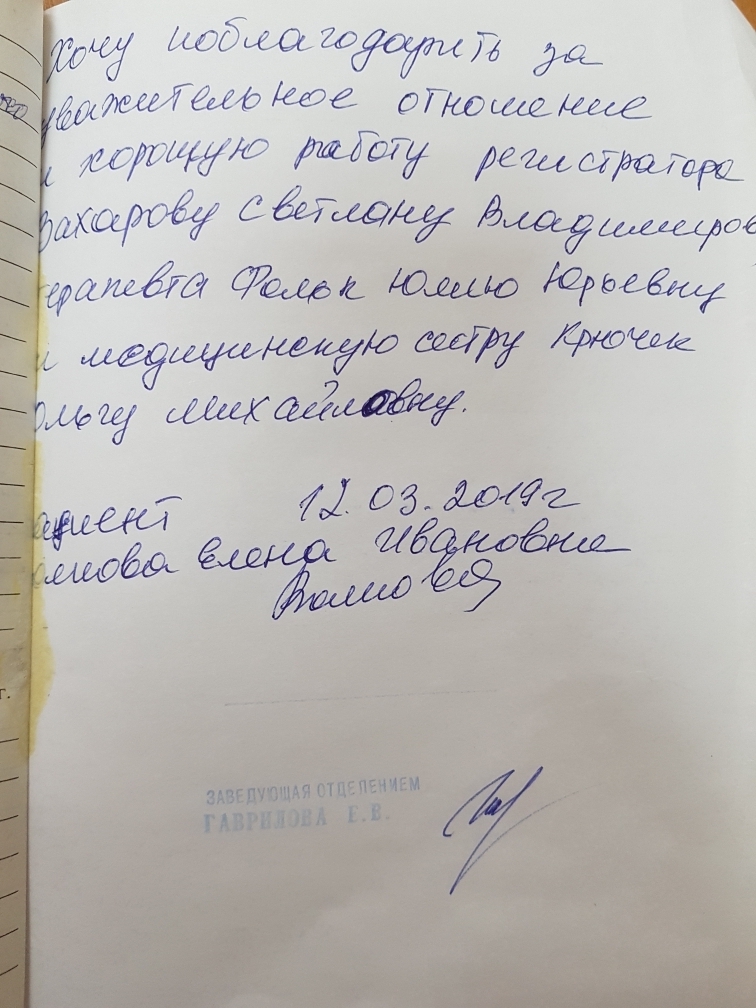 Хочу поблагодарить за
уважительное отношение
и хорошую работу регистратора
Захарову Светлану Владимиров
терапевта Фольк Юлию Юрьевну
и медицинскую сестру Крючек
Ольгу Михайловну.
ациент 12.03.2019г
Елена Ивановна
ЗАВЕДУЮЩАЯ ОТДЕЛЕНИЕМ
ГАВРИЛОВА Е.В.